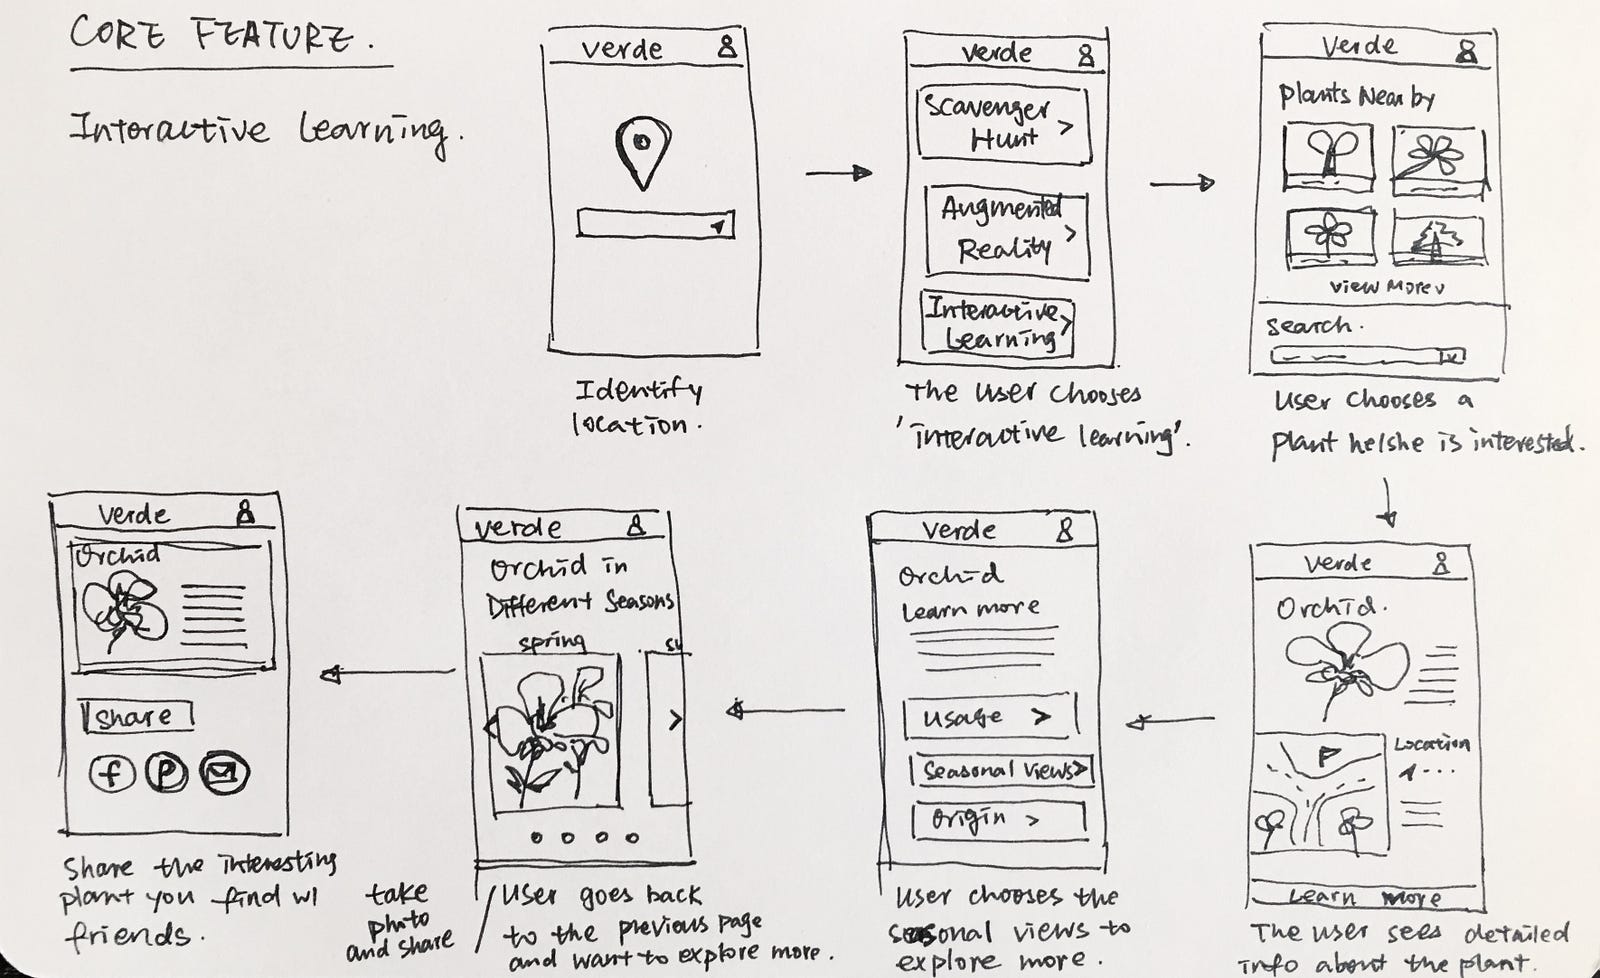 CORE FEATURE.
Interactive Learning.
Verde
Identify
location.
Verde
Scavenger
Hunt >
Augmented
Reality >
Interactive
Learning >
The User Chooses
'interactive learning'.
Verde
Plants Nearby
View More v
Search.
User Chooses a
plant he/she is interested.
Verde
Orchid.
Location
Learn more
The User sees detailed
info about the plant.
Verde
Orchid
Learn more
Usage >
Seasonal Views >
Origin >
User chooses the
seasonal views to
explore more.
Verde
Orchid in
Different Seasons
spring
su
< >
/ User goes back
to the previous page
and want to explore more.
take
photo
and share
Verde
Orchid
Share
f P
Share the interesting
plant you find w/
friends.